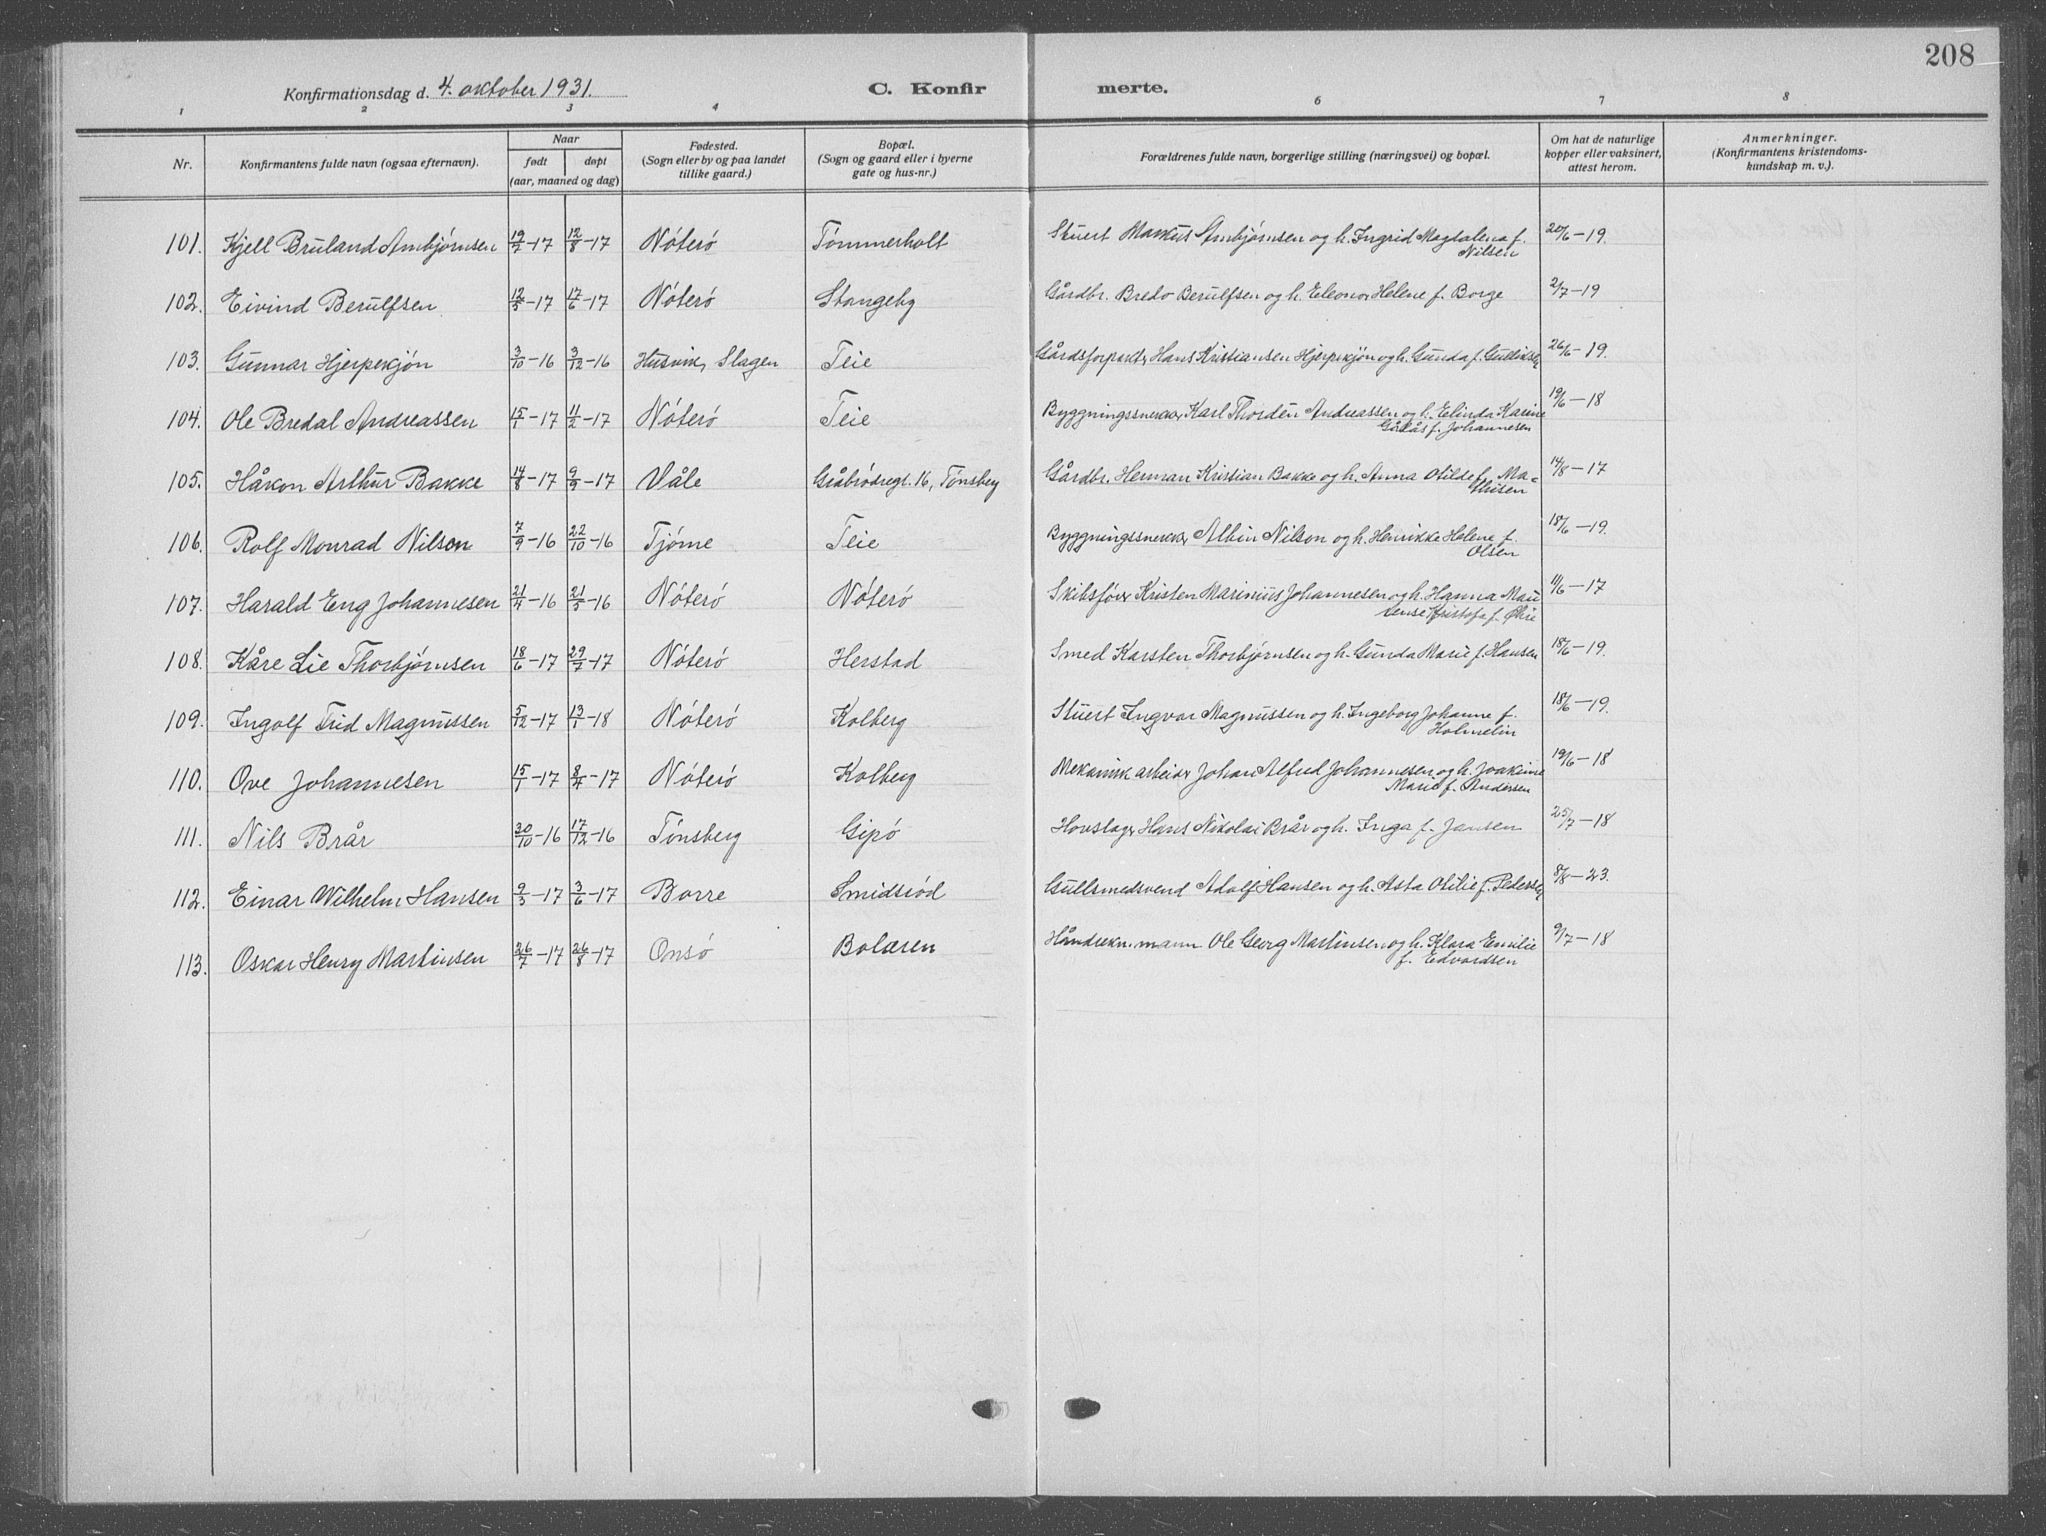 208
Konfirmationsdag d. 4. oktober 1931. C. Konfir merte.
1 2 3 4 5 6 7 8
Nr. Konfirmantens fulde navn (ogsaa efternavn). Naar født døpt (aar, maaned og dag) Fødested. (Sogn eller by og paa landet tillike gaard.) Bopæl. (Sogn og gaard eller i byerne gate og hus-nr.) Forældrenes fulde navn, borgerlige stilling (næringsvei) og bopæl. Om hat de naturlige kopper eller vaksinert, attest herom. Anmerkninger. (Konfirmantens kristendomskundskap m. v.).
101. Kjell Bruland Ambjørnsen 19/7-17 12/8-17 Nøterø Tømmerholt Stuert Markus Ambjørnsen og h. Ingrid Magdalena f. 20/6-19.
Nilsen
102. Eivind Berulfsen 12/5-17 17/6-17 Nøterø Stangeby Gårdbr. Bredo Berulfsen og h. Eleonor Helene f. Borge 2/7-19
103. Gunnar Hjerpekjøn 3/10-16 3/12-16 Husvik, Slagen Teie Gårdsforpakter Hans Kristiansen Hjerpekjøn og h. Gunda f. Gulliksen 26/6-19.
104. Ole Bredal Andreassen 15/1-17 11/2-17 Nøterø Teie Byggningssnekker Karl Thordén Andreassen og h. Elinda Karine 19/6-18
f. Johannesen
105. Håkon Arthur Bakke 14/8-17 9/9-17 Våle Gråbrødregt. 16, Tønsberg Gårdbr. Herman Kristian Bakke og h. Anna Otilde f. Ma- 14/8-17
thisen
106. Rolf Monrad Nilsen 7/9-16 22/10-16 Tjøme Teie Byggningssnekker Albin Nilson og h. Henrikke Helene f. 18/6-19.
Olsen
107. Harald Eng Johannesen 21/4-16 21/5-16 Nøterø Nøterø Skibsfører Kristen Marinius Johannesen og h. Hanna Mau 11/6-17
Kristofa f. Øhre
108. Kåre Lie Thorbjørnsen 18/6-17 29/7-17 Nøterø Herstad Smed Karsten Thorbjørnsen og h. Gunda Marie f. Hansen 18/6-19.
109. Ingolf Trid Magnussen 5/12-17 13/1-18 Nøterø Kolberg Stuert Ingvar Magnussen og h. Ingeborg Johanne f. 18/6-19.
Holmelin
110. Ove Johannesen 15/1-17 8/4-17 Nøterø Kolberg Mekanisk arbeider Johan Alfred Johannesen og h. Joakime 19/6-18
Marie f. Andersen
111. Nils Brår 30/10-16 17/12-16 Tønsberg Gipø Hovslager Hans Nikolai Brår og h. Inga f. Jansen 25/7-18
112. Einar Wilhelm Hansen 9/3-17 3/6-17 Borre Smidsrød Gullsmedsvend Adolf Hansen og h. Asta Otilie f. Pedersen 8/8-23.
113. Oskar Henry Martinsen 26/7-17 26/8-17 Onsø Bolæren Håndrekn. mann Ole Georg Martinsen og h. Klara Emilie 9/7-18
f. Edvardsen